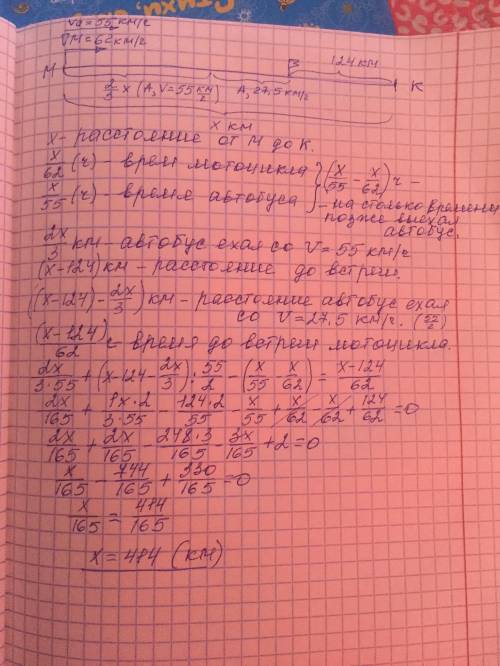 Vа = 55 км/г
VМ = 62 км/г
М В 124 км К
2/3 x (А, V=55 км/г) А, 27,5 км/г
x км
x - расстояние от М до К.
x/62 (г) - время мотоцикла } (x/55 - x/62) г -
x/55 (г) - время автобуса } - на столько времени
позже выехал
автобус.
2x/3 км - автобус ехал со V = 55 км/г
(x-124) км - расстояние до встречи.
((x-124) - 2x/3) км - расстояние автобус ехал
со V = 27,5 км/г. (55/2)
(x-124)/62 - время до встречи мотоцикла.
2x/3·55 + (x-124-2x/3) : 55/2 - (x/55 - x/62) = x-124/62
2x/165 + 1x·2/3·55 - 124·2/55 - x/55 + x/62 - x/62 + 124/62 = 0
2x/165 + 2x/165 - 248·3/165 - 3x/165 + 2 = 0
x/165 - 744/165 + 330/165 = 0
x/165 = 414/165
x = 414 (км)